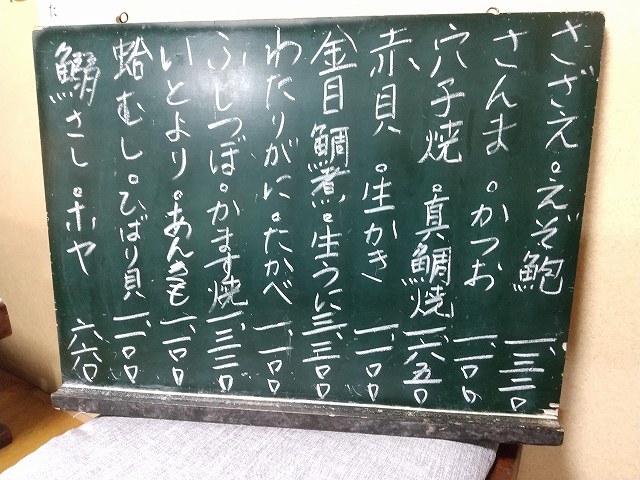 さざえ。えぞ鮑 一、三二〇
さんま。かつお 一、一〇〇
穴子焼。真鯛焼 一、六五〇
赤貝。生かき 一、一〇〇
金目鯛煮。生うに 三、三〇〇
わたりがに。たかべ 一、一〇〇
ふじつぼ。かます焼 一、三二〇
いとより。あんきも 一、一〇〇
蛤むし。ひばり貝 一、一〇〇
鰯さし。ホヤ 六六〇